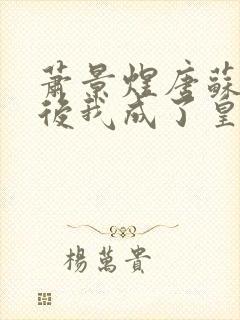 蕭景煋唐蘇
後我成了皇
楊萬貴